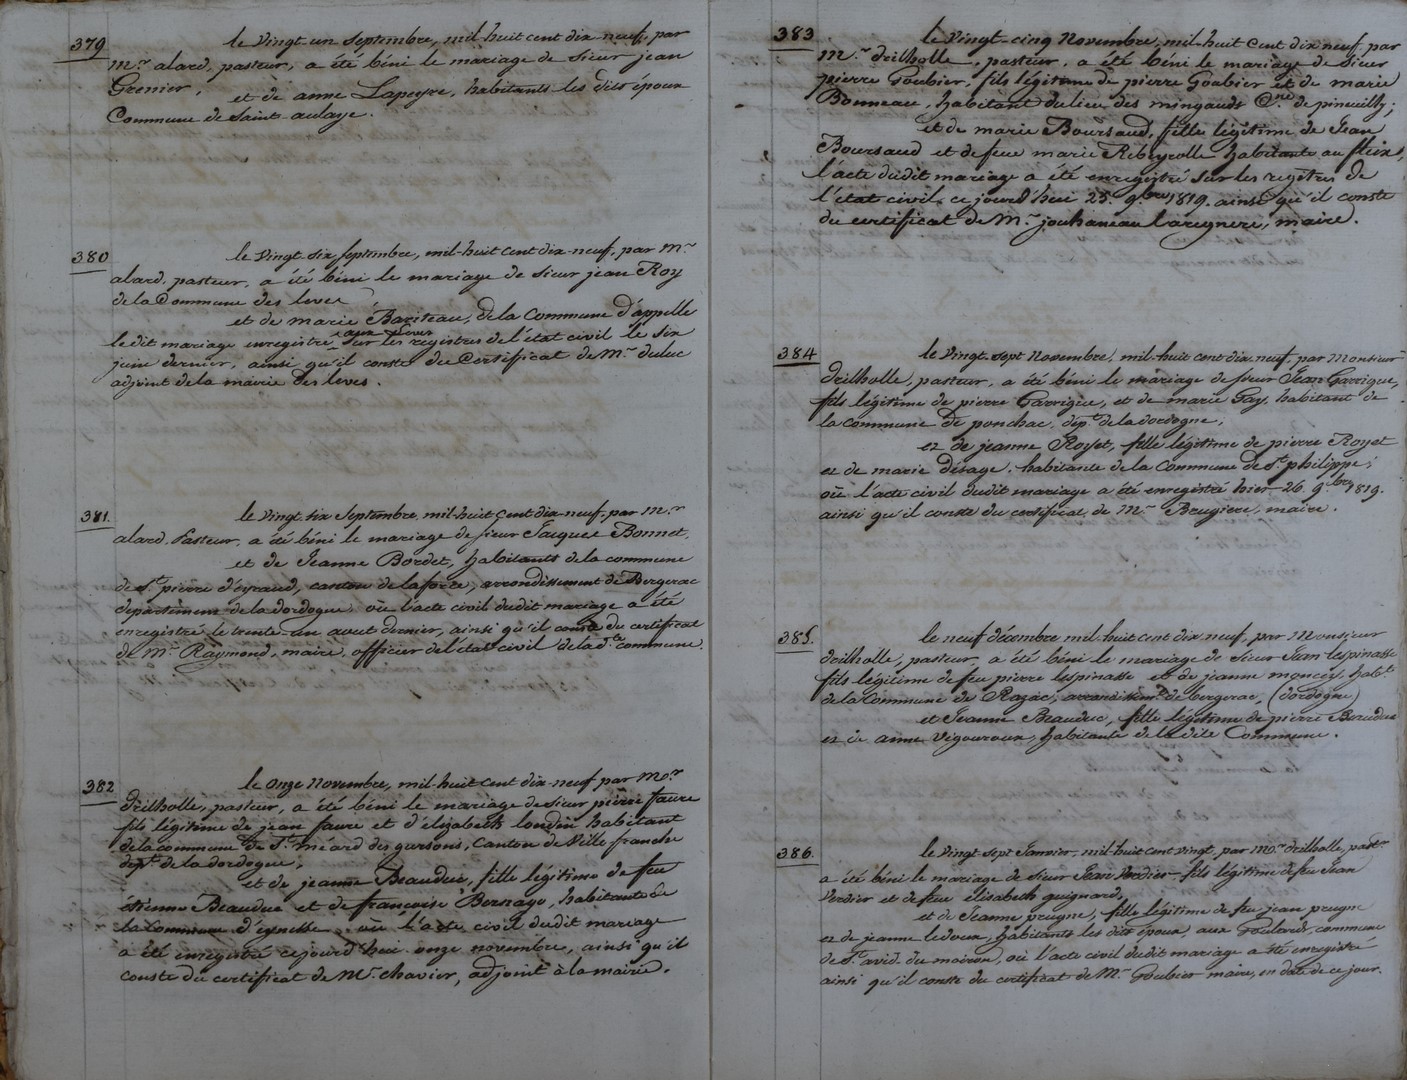 379
le vingt-un Septembre, mil-huit cent dix-neuf, par
M.r alard, pasteur, a été béni le mariage de Sieur jean
Grenier,
et de anne Lapeyre, habitants les dits époux
Commune de Sainte aulaye.
380
le vingt six septembre, mil-huit cent dix-neuf, par M.r
alard, pasteur, a été béni le mariage de sieur jean Roy
de la Commune des leves
et de marie Bariteau, de la Commune d'appelle
le dit mariage enregistré aux leves sur les registres de l'état civil le six
juin dernier, ainsi qu'il conste du Certificat de M.r duluc
adjoint de la mairie des leves.
381.
le vingt six Septembre, mil-huit cent dix-neuf, par M.r
alard, Pasteur, a été béni le mariage de sieur Jacques Bonnet,
et de Jeanne Bordet, habitants de la commune
de S.t pierre d'eyraud, canton de laforce, arrondissement de Bergerac
département de la dordogne, où l'acte civil dudit mariage a été
enregistré le trente-un aout dernier, ainsi qu'il conste du certificat
de M.r Raymond, maire, officier de l'état civil de la d.te commune.
382
le onze novembre, mil-huit cent dix-neuf par Mo.r
drilholle, pasteur, a été béni le mariage de sieur pierre faure
fils légitime de jean faure et d'élizabeth loudin habitant
de la commune de S.t méard des gursons, Canton de Ville franche
dép.t de la dordogne,
et de jeanne Beauduc, fille légitime de feu
étienne Beauduc et de françoise Bernage, habitante de
la commune d'eynesse, où l'acte civil dudit mariage
a été enregistré cejourd'hui onze novembre, ainsi qu'il
conste du certificat de M.r chavier, adjoint à la mairie.
383
le vingt-cinq Novembre, mil-huit cent dix neuf, par
M.r drilholle, pasteur, a été béni le mariage de sieur
pierre Goubier, fils légitime de pierre Goubier et de marie
Bonneau, habitant du lieu des mingauds C.ne de pineuilly;
et de marie Boursaud, fille légitime de Jean
Boursaud et de feue marie Ribeyrolle habitante au fleix,
l'acte dudit mariage a été enregistré sur les registres de
l'état civil, ce jourd'hui 25. 9.bre 1819. ainsi qu'il conste
du certificat de M.r jouhaneau laregnere, maire.
384
le vingt-sept Novembre, mil-huit cent dix neuf, par Monsieur
drilholle, pasteur, a été béni le mariage de sieur Jean Garrigue,
fils légitime de pierre Garrigue, et de marie Gay, habitant de
la commune de ponchac, dép.t de la dordogne,
et de jeanne Royet, fille légitime de pierre Royet
et de marie desage, habitante de la commune de S.t philippe;
où l'acte civil dudit mariage a été enregistré hier 26. 9.bre 1819.
ainsi qu'il conste du certificat de M.r Brugiere, maire.
385.
le neuf décembre mil-huit cent dix neuf, par Monsieur
drilholle, pasteur, a été béni le mariage de Sieur Jean lespinasse
fils légitime de feu pierre lespinasse et de jeanne moncey, hab.t
de la Commune de Razac, arrondissem.t de bergerac, (dordogne)
et Jeanne Beauduc, fille légitime de pierre Beauduc
et de anne Vigouroux, habitante de la dite Commune.
386.
le vingt sept Janvier, mil-huit cent vingt, par Mo.r drilholle, past.r
a été béni le mariage de sieur Jean Verdier fils légitime de feu Jean
Verdier et de feue élisabeth guignard,
et de Jeanne prugne, fille légitime de feu jean prugne
et de jeanne ledoux, habitants les dits époux, aux Goulards, commune
de S.t avid du moiron, où l'acte civil dudit mariage a été enregistré
ainsi qu'il conste du certificat de M.r Goubier maire, en date de ce jour.